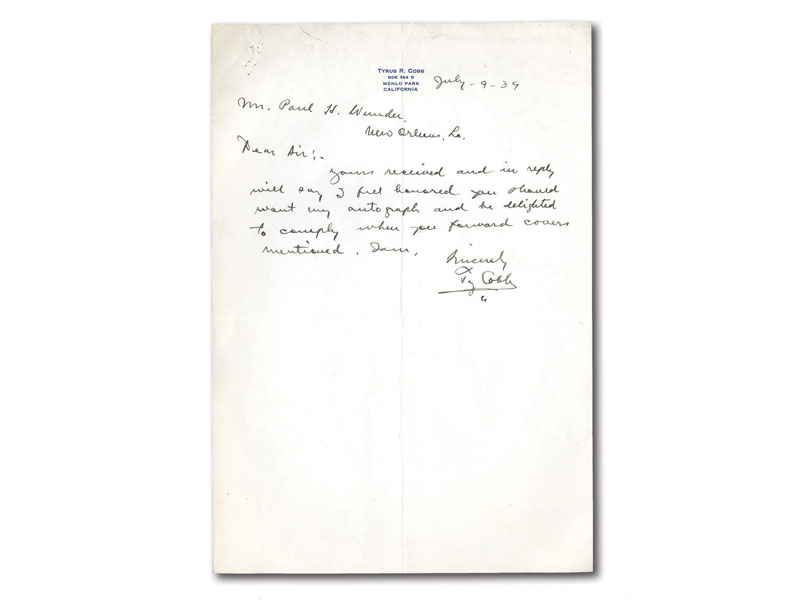 TYRUS R. COBB
BOX 994 D
MENLO PARK
CALIFORNIA
July-9-39
Mr. Paul H. Wunder,
New Orleans, La.
Dear Sir:-
yours received and in reply
will say I feel honored you should
want my autograph and be delighted
to comply when you forward covers
mentioned. I am,
Sincerely
Ty Cobb